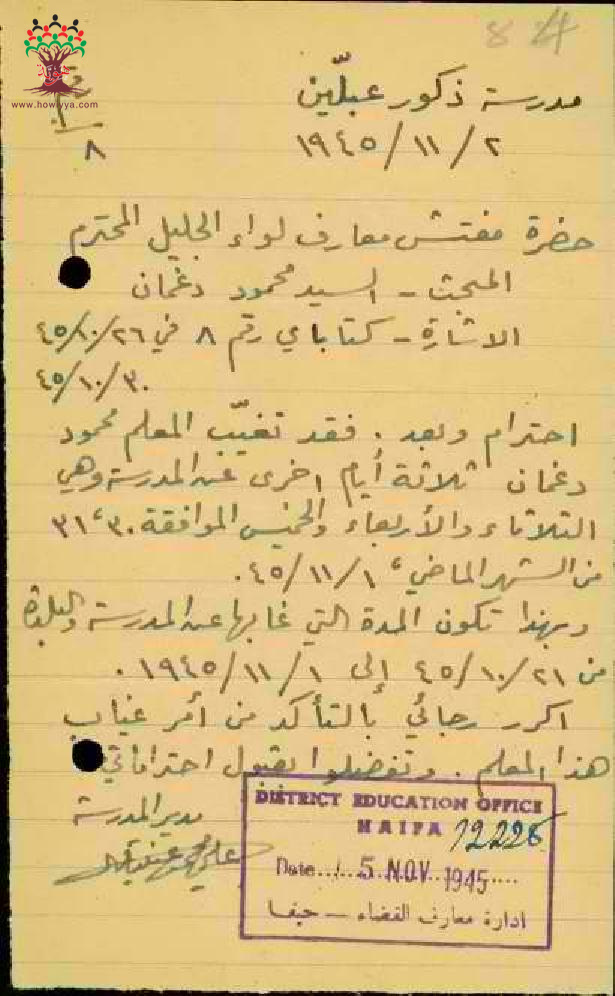 84
www.howiyya.com
رقم
٨
مدرسة ذكور عبلّين
٢ / ١١ / ١٩٤٥
حضرة مفتش معارف لواء الجليل المحترم
المبحث - السيد محمود دغمان
الاشارة - كتاباي رقم ٨ في ٢٦/١٠/٤٥
٣٠/١٠/٤٥
احترام وبعد . فقد تغيّب المعلم محمود
دغمان ثلاثة أيام اخرى عن المدرسة وهي
الثلاثاء والأربعاء والخميس الموافقة ٣٠، ٣١
من الشهر الماضي، ١/١١/٤٥.
وبهذا تكون المدة التي غابها عن المدرسة والبلدة
من ٢١/١٠/٤٥ إلى ١/١١/١٩٤٥ .
اكرر رجائي بالتأكد من أمر غياب
هذا المعلم . وتفضلوا بقبول احتراماتي
مدير المدرسة
DISTRICT EDUCATION OFFICE
HAIFA 12226
Date 5 NOV 1945
ادارة معارف القضاء - حيفا